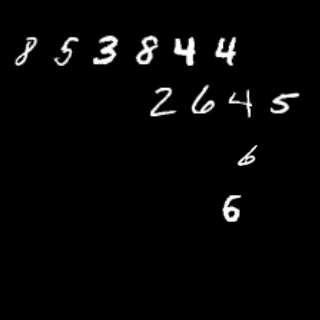 8 5 3 8 4 4
2 6 4 5
6
6